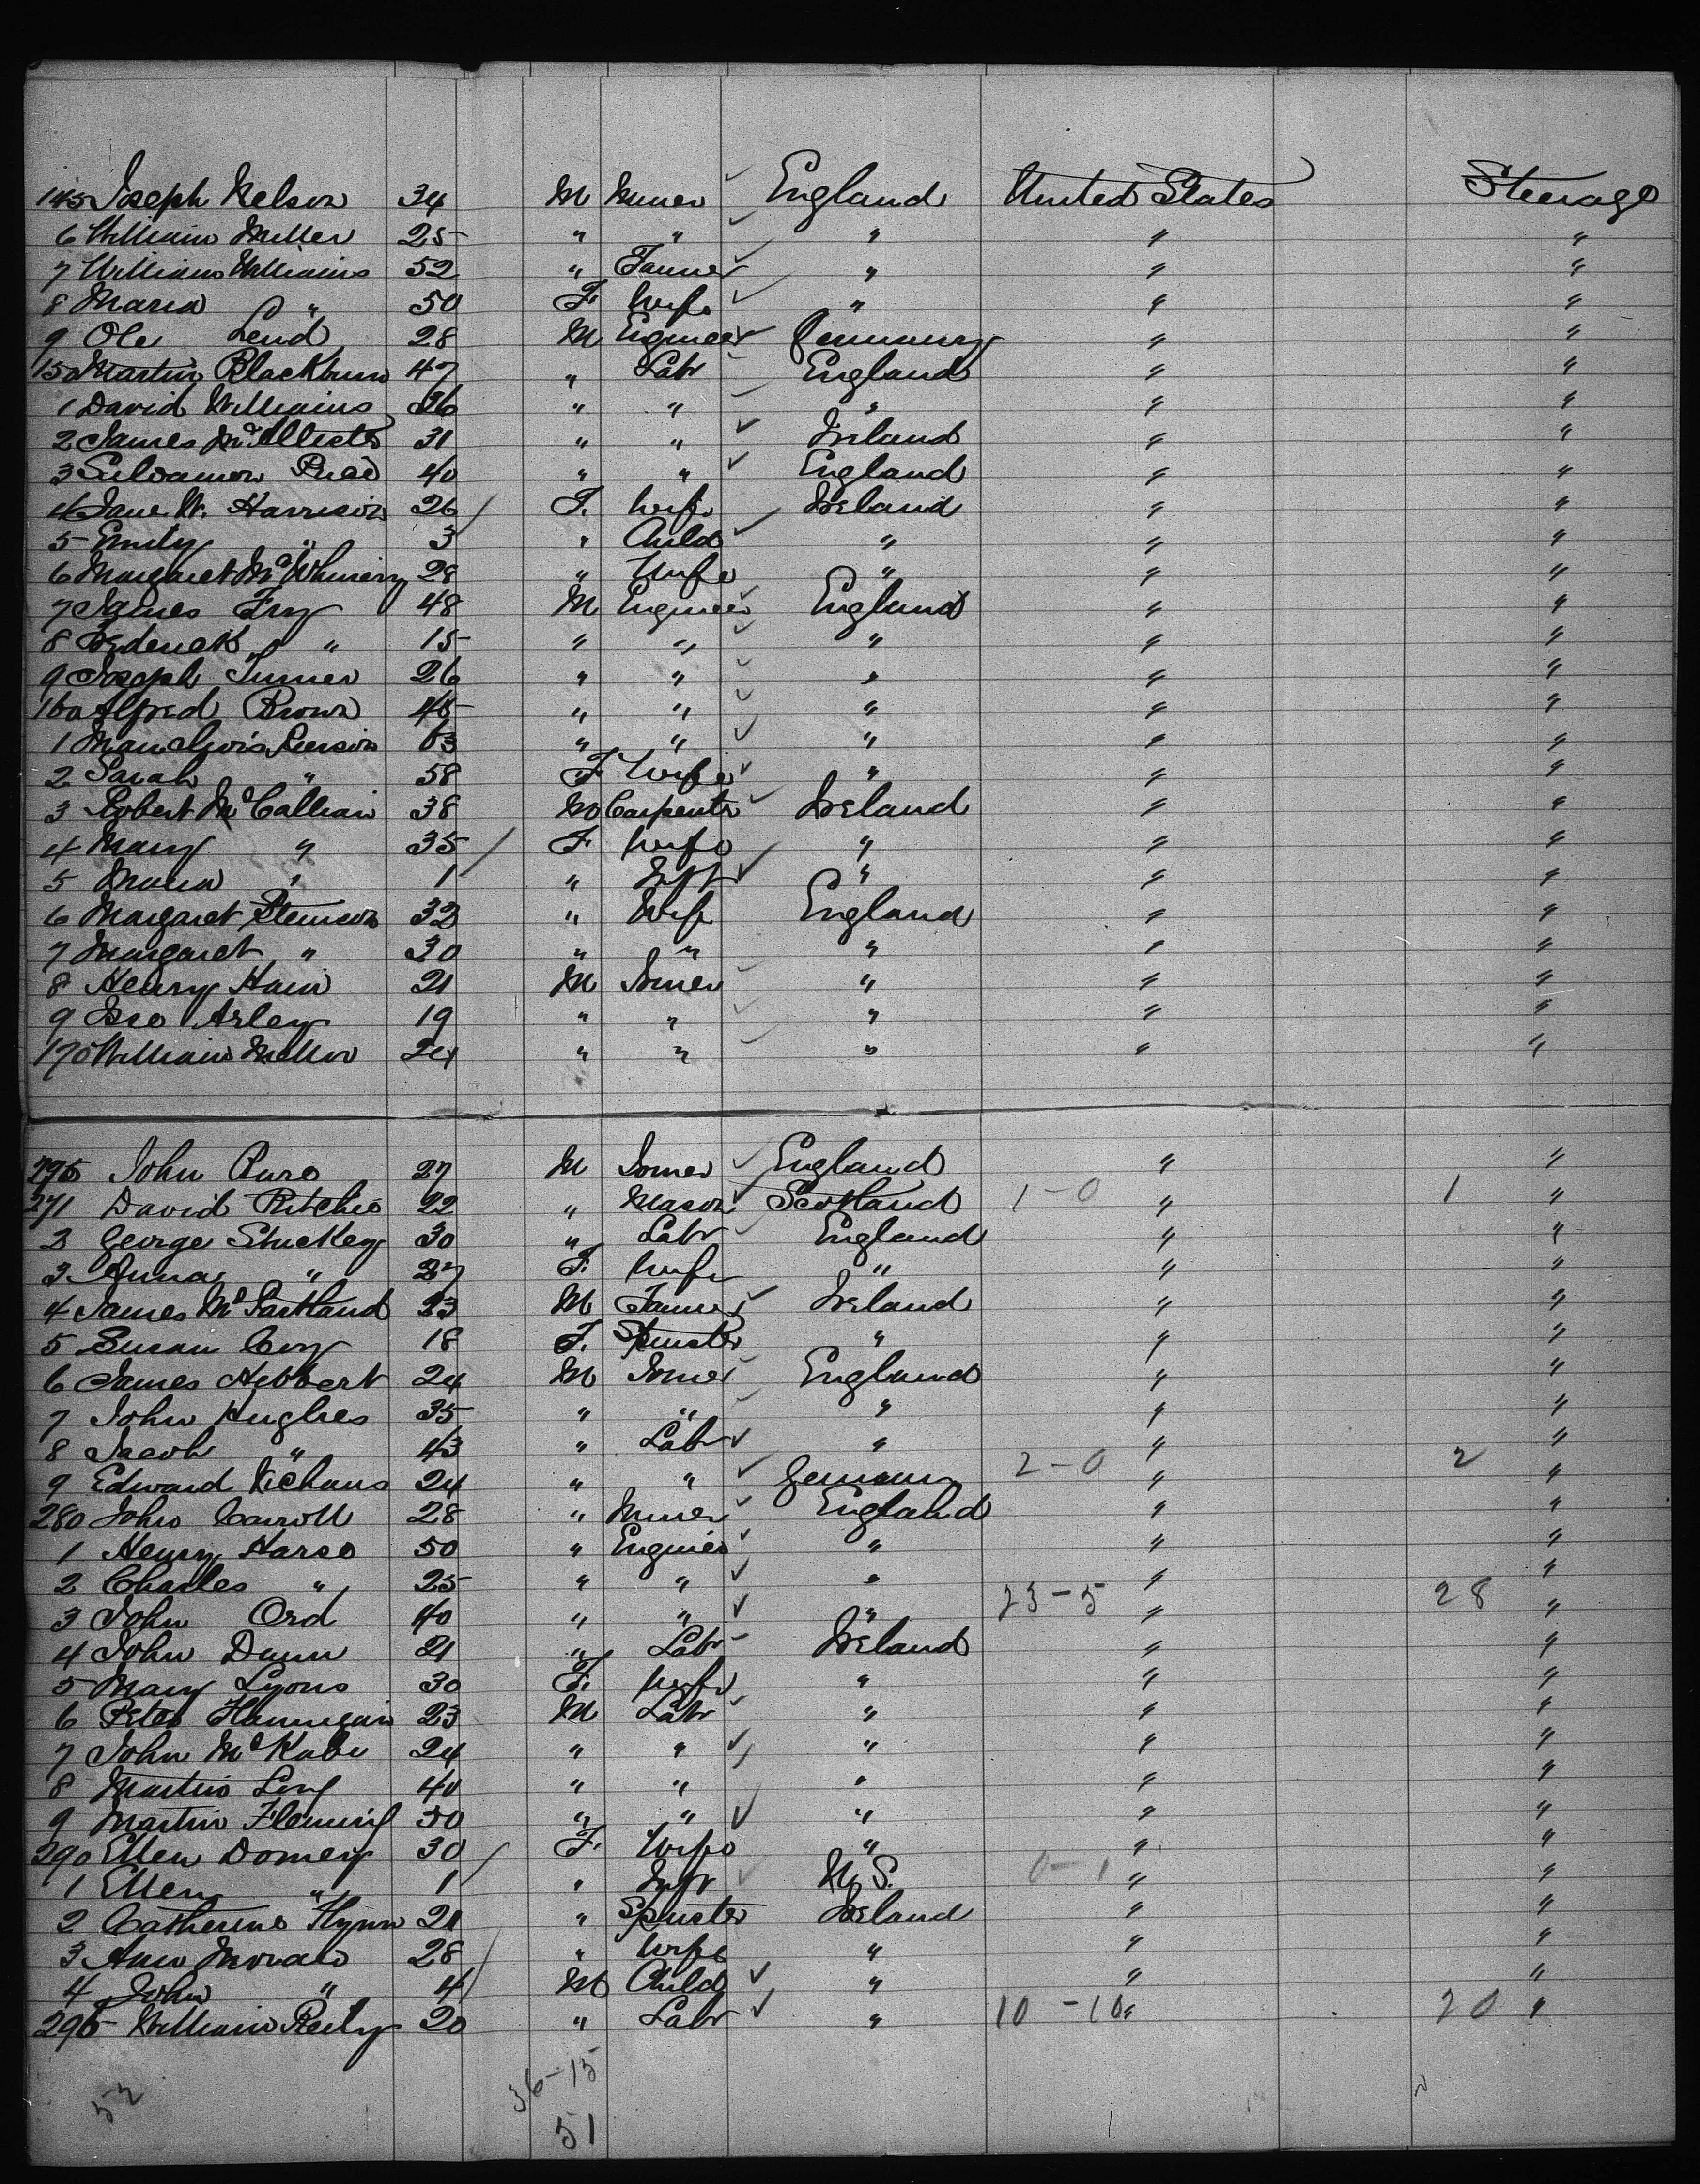 145 Joseph Nelson 34 M Miner England United States Steerage
6 William Miller 25 " " " " "
7 William Williams 52 " Farmer " " "
8 Maria " 50 F. Wife " " "
9 Ole Lend 28 M Engineer Germany " "
150 Martin Blackburn 47 " Labr England " "
1 David Williams 26 " " " " "
2 James McAllister 31 " " Ireland " "
3 40 " " England " "
4 Jane W. Harrison 26 F. Wife Ireland " "
5 Emily " 3 " Child " " "
6 Margaret 28 " Wife " " "
7 James Fry 48 M Engineer England " "
8 Frederick " 15 " " " " "
9 Joseph Turner 26 " " " " "
160 Alfred Brown 45 " " " " "
1 63 " " " " "
2 Sarah " 58 F Wife " " "
3 Robert McCallian 38 M Carpenter Ireland " "
4 Mary " 35 F Wife " " "
5 Maria " 1 " Inft " " "
6 Margaret 32 " Wife England " "
7 Margaret " 30 " " " " "
8 Henry Hain 21 M " " "
9 Geo Arley 19 " " " " "
170 William Miller 24 " " " " "
John 27 M England " "
271 David Ritchie 22 " Mason Scotland 1-0 " 1 "
2 George Stuckey 30 " Labr England " "
3 Anna " 27 F. Wife " " "
4 James McPartland 23 M Farmer Ireland " "
5 Susan Coy 18 F. Spinster " " "
6 James Hebbert 24 M England " "
7 John Hughes 35 " " " " "
8 Jacob " 43 " Labr " " "
9 Edward 24 " " Germany 2-0 " 2 "
280 John Carroll 28 " Miner England " "
1 Henry Harse 50 " Engineer " " "
2 Charles " 25 " " " " "
3 John Ord 40 " " " 23-5 " 28 "
4 John Dunn 21 " Labr Ireland " "
5 Mary Lyons 30 F. Wife " " "
6 Peter Hannigan 23 M Labr " " "
7 John McKabe 24 " " " " "
8 Martin Long 40 " " " " "
9 Martin Fleming 30 " " " " "
290 Ellen Domery 30 F. Wife " " "
1 Ellen " 1 " Inft U.S. 0-1 " "
2 Catherine Flynn 21 " Spinster Ireland " "
3 Ann 28 " Wife " " "
4 John " 4 M Child " " "
295 William Reily 20 " Labr " 10-10 " 20 "
52 36-15
51